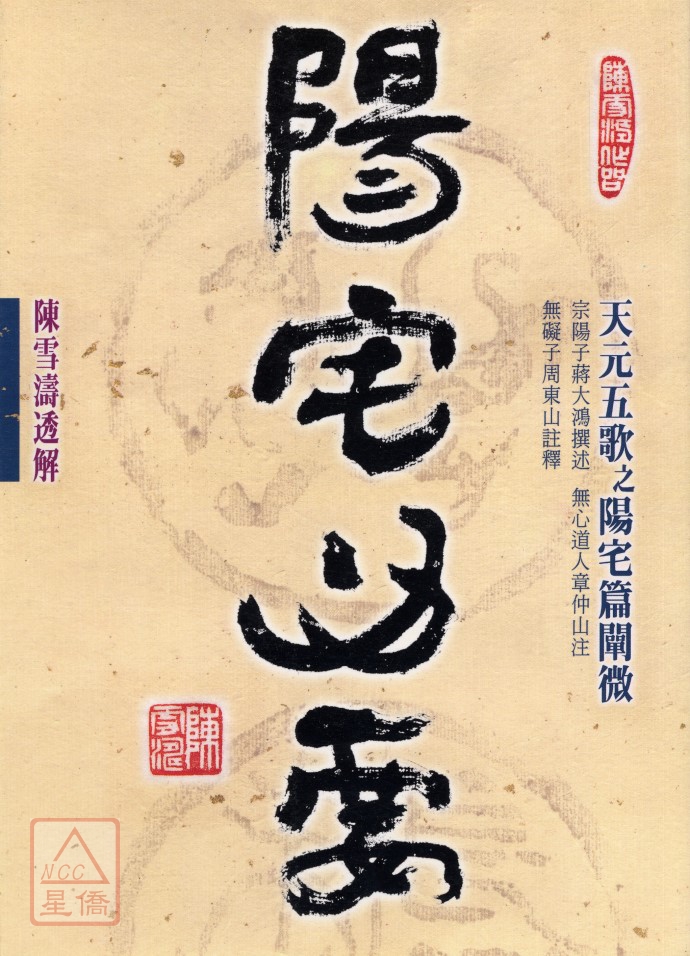 天元五歌之陽宅篇闡微
宗陽子蔣大鴻撰述 無心道人章仲山注
無礙子周東山註釋
陽宅要
陳雪濤透解
陳雪濤
NCC
星僑